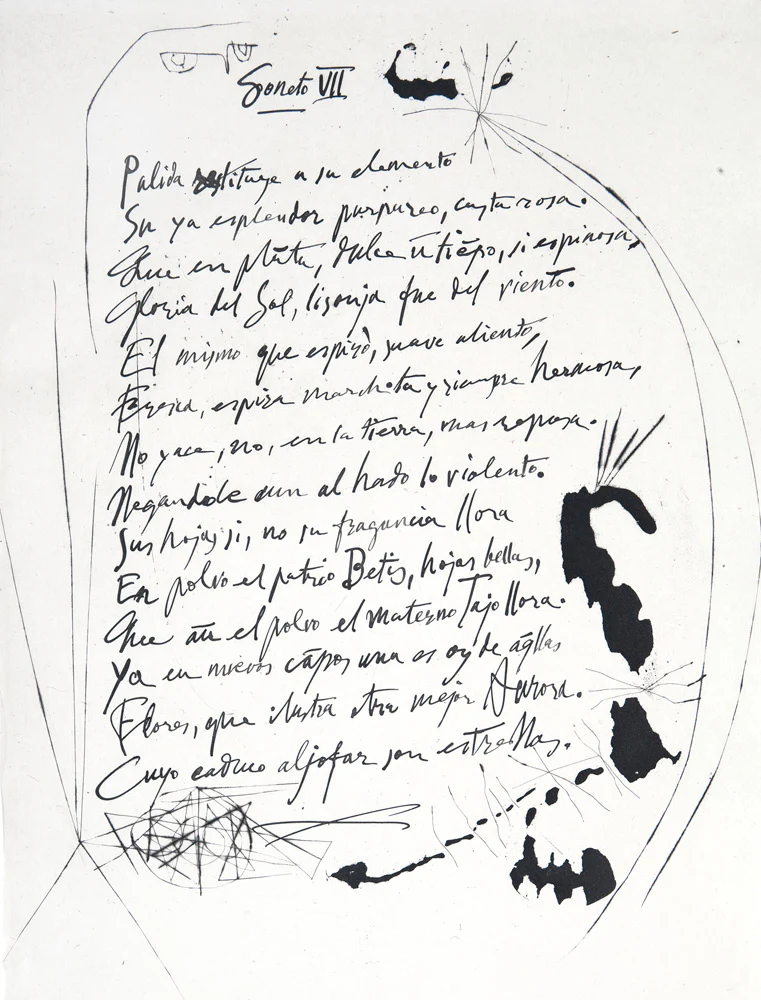 Soneto VII
Palida restituye a su elemento
Su ya esplendor purpureo, casta rosa.
Que en plãta, dulce ũ tiẽpo, si espinosa,
Gloria del Sol, lisonja fue del viento.
El mismo que espirò, suave aliento,
Fresca, espira marchita y siempre hermosa,
No yace, no, en la tierra, mas reposa.
Negandole aun al hado lo violento.
Sus hojas si, no su fragancia llora
En polvo el patrio Betis, hojas bellas,
Que aũ el polvo el materno Tajo llora.
Ya en nuevos cãpos una es oy de aq̃llas
Flores, que ilustra otra mejor Aurora.
Cuyo caduco aljofar son estrellas.